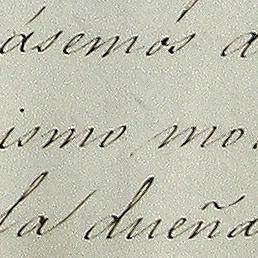 ásemos a
ismo mo
la dueña